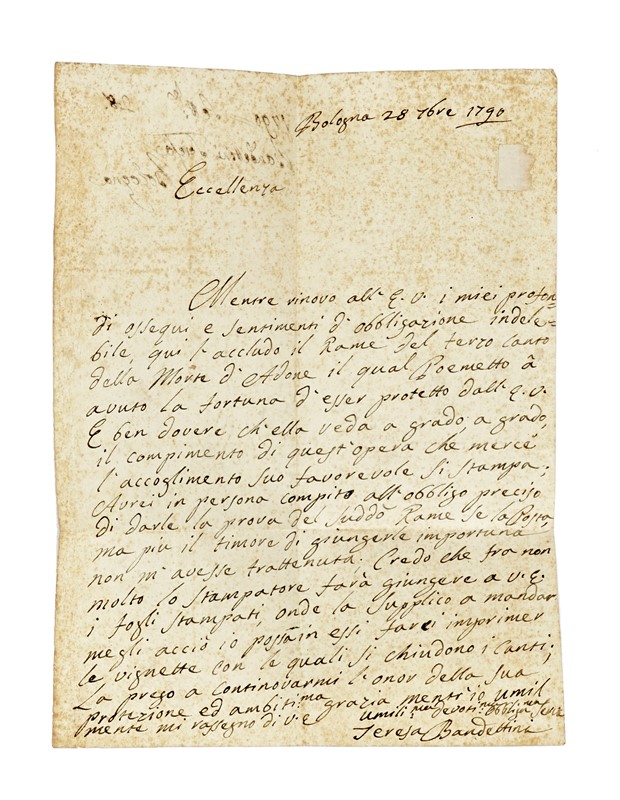 Bologna 28 7bre 1790
Eccellenza
Mentre rinovo all' E. V. i miei profon=
di ossequi e sentimenti d' obbligazione indele=
bile, qui l' accludo il Rame del terzo Canto
della Morte d' Adone il qual Poemetto à
avuto la fortuna d' esser protetto dall' E. V.
E ben dovere ch' ella veda a grado, a grado,
il compimento di quest' opera che mercè
l' accoglimento suo favorevole si stampa.
Avrei in persona compito all' obbligo preciso
di darle la prova del suddo Rame se la Posta,
ma più il timore di giungerle importuna
non m' avesse trattenuta. Credo che fra non
molto lo stampatore farà giungere a V. E.
i fogli stampati, onde la supplico a mandar
megli acciò io possa in essi farci imprimer
le vignette con le quali si chiudono i Canti;
La prego a continovarmi l' onor della sua
protezione ed ambitma grazia mentr' io umil
mente mi rassegno di V. E.
Umilima devotma Obbligma Serva
Teresa Bandettini